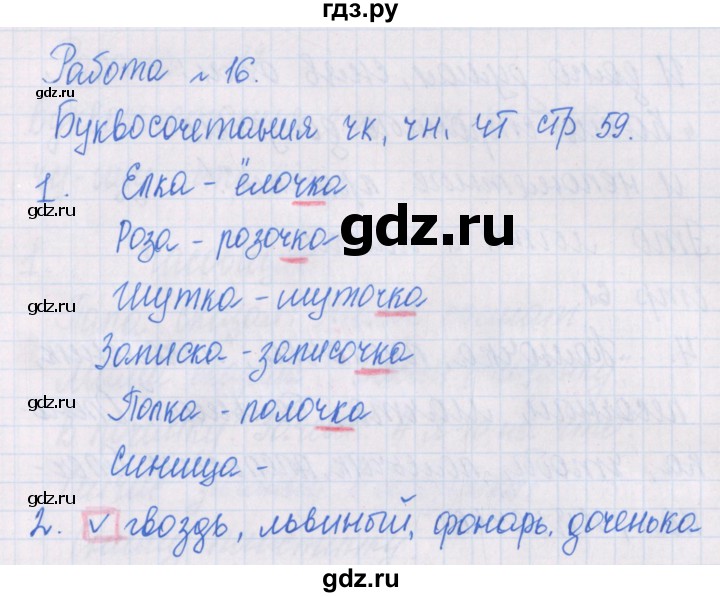 гдз.ру
Работа № 16.
gdz.ru
gdz.ru
Буквосочетания чк, чн, чт стр 59.
1. Елка - ёлочка
gdz.ru
gdz.ru
Роза - розочка
gdz.ru
gdz.ru
Шутка - шуточка
Записка - записочка
gdz.ru
gdz.ru
Полка - полочка
Синица -
gdz.ru
gdz.ru
2. ✓ гвоздь, львиный, фонарь, доченька
gdz.ru